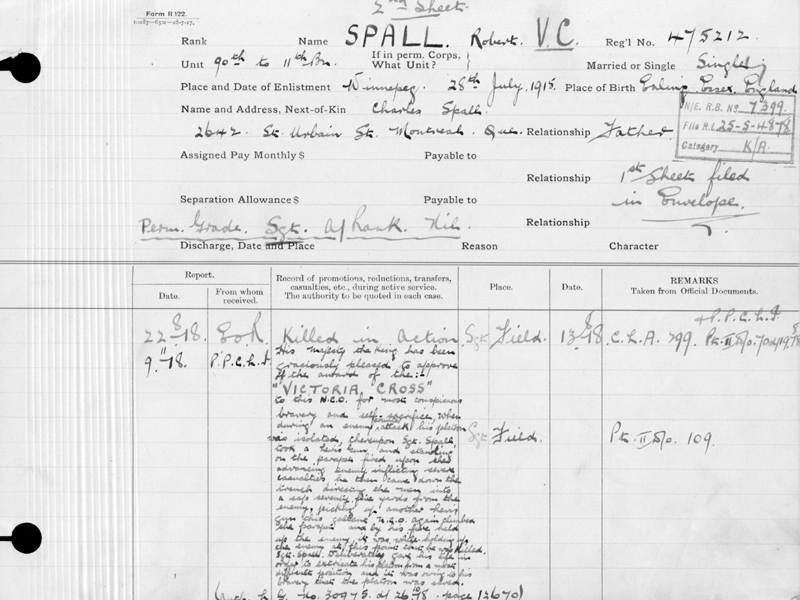 2nd Sheet.
Form R 122.
Rank Name SPALL. Robert. V.C. Reg'l No. 475212
Unit 90th to 11th Bn. If in perm. Corps, What Unit? Married or Single Single
Place and Date of Enlistment Winnepeg. 28th July. 1915. Place of Birth Essex. England
Name and Address, Next-of-Kin Charles Spall.
2642 St. Urbain St. Montreal. Que. Relationship Father.
N/E. R.B. No 7399.
File R.L. 25-S-4878
Category K/A.
Assigned Pay Monthly $ Payable to
Relationship 1st Sheet filed
in Envelope.
Separation Allowance $ Payable to
Relationship
Perm. Grade. Sgt. A/rank. Nil.
Discharge, Date and Place Reason Character
Report.
Date. From whom received.
Record of promotions, reductions, transfers, casualties, etc., during active service. The authority to be quoted in each case.
Place. Date.
REMARKS
Taken from Official Documents.
P.P.C.L.I.
22-8-18. Killed in Action Sgt Field 13-8-18 C.L.A. 799.
9-11-18. P.P.C.L.I. His Majesty the King has been
graciously pleased to approve
of the award of the:-
"VICTORIA CROSS"
to this N.C.O. for most conspicuous
bravery and self-sacrifice, when
during an enemy counter attack his platoon
was isolated, thereupon Sgt. Spall, Sgt Field. Pt. II D/o. 109.
took a Lewis Gun and standing
on the parapet fired upon the
advancing enemy inflicting severe
casualties, he then came down the
trench directing the men into
a sap seventy five yards from the
enemy, picking up another Lewis
gun this gallant N.C.O. again climbed
the parapet and by his fire held
up the enemy, it was while holding up
the enemy at this point that he was killed.
Sgt. Spall. Deliberately gave his life in
order to extricate his platoon from a most
difficult position and it was owing to his
bravery that the platoon was saved.
no. 30975. d/ 26-10-18. page 12670)